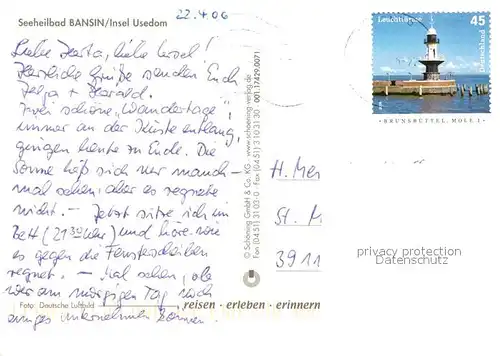 22.4.06
Seeheilbad BANSIN/Insel Usedom
Liebe Herta, liebe
Herzliche Grüße senden Euch
Helga + Harald.
Zwei schöne „Wandertage",
immer an der Küste entlang,
gingen heute zu Ende. Die
Sonne ließ sich nur manch-
mal sehen, aber es regnete
nicht. – Jetzt sitze ich im
Bett (21 30 Uhr) und höre wie
es gegen die Fensterscheiben
regnet. – Mal sehen, ob
wir am morgigen Tag noch
einiges unternehmen können.
Foto: Deutsche Luftbild
reisen - erleben - erinnern
© Schöning GmbH & Co. KG · www.schoening-verlag.de
Fon (0451) 31 03-0 · Fax (0451) 3103130 001.17429.0071
Leuchttürme
45
Deutschland
BRUNSBÜTTEL, MOLE 1
H. Mer
St. M
3911
privacy protection
Datenschutz